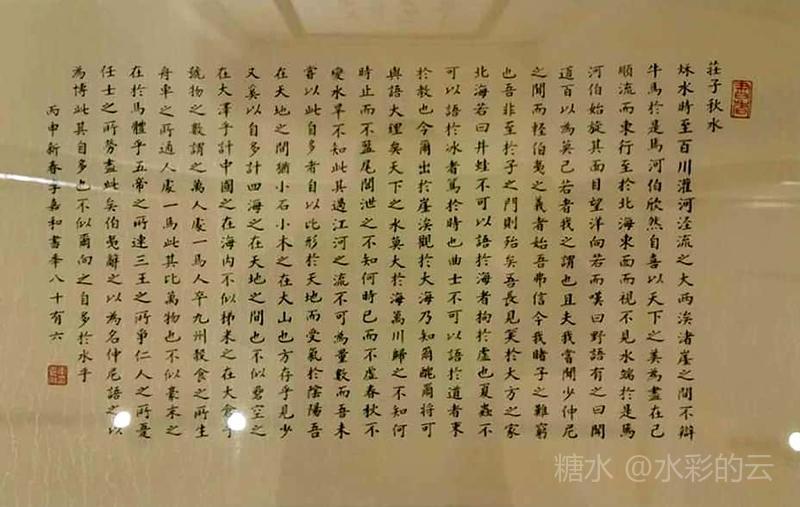 莊子秋水
秋水時至百川灌河泾流之大兩涘渚崖之間不辯
牛馬於是焉河伯欣然自喜以天下之美為盡在己
順流而東行至於北海東面而視不見水端於是焉
河伯始旋其面目望洋向若而嘆曰野語有之曰聞
道百以為莫己若者我之謂也且夫我嘗聞少仲尼
之聞而輕伯夷之義者始吾弗信今我睹子之難窮
也吾非至於子之門則殆矣吾長見笑於大方之家
北海若曰井蛙不可以語於海者拘於虛也夏蟲不
可以語於冰者篤於時也曲士不可以語於道者束
於教也今爾出於崖涘觀於大海乃知爾醜爾將可
與語大理矣天下之水莫大於海萬川歸之不知何
時止而不盈尾閭泄之不知何時已而不虛春秋不
變水旱不知此其過江河之流不可為量數而吾未
嘗以此自多者自以比形於天地而受氣於陰陽吾
在天地之間猶小石小木之在大山也方存乎見少
又奚以自多計四海之在天地之間也不似礨空之
在大澤乎計中國之在海內不似稊米之在大倉乎
號物之數謂之萬人處一焉人卒九州穀食之所生
舟車之所通人處一焉此其比萬物也不似豪末之
在於馬體乎五帝之所連三王之所爭仁人之所憂
任士之所勞盡此矣伯夷辭之以為名仲尼語之以
為博此其自多也不似爾向之自多於水乎
丙申新春于嘉和書年八十有六
糖水 @水彩的云